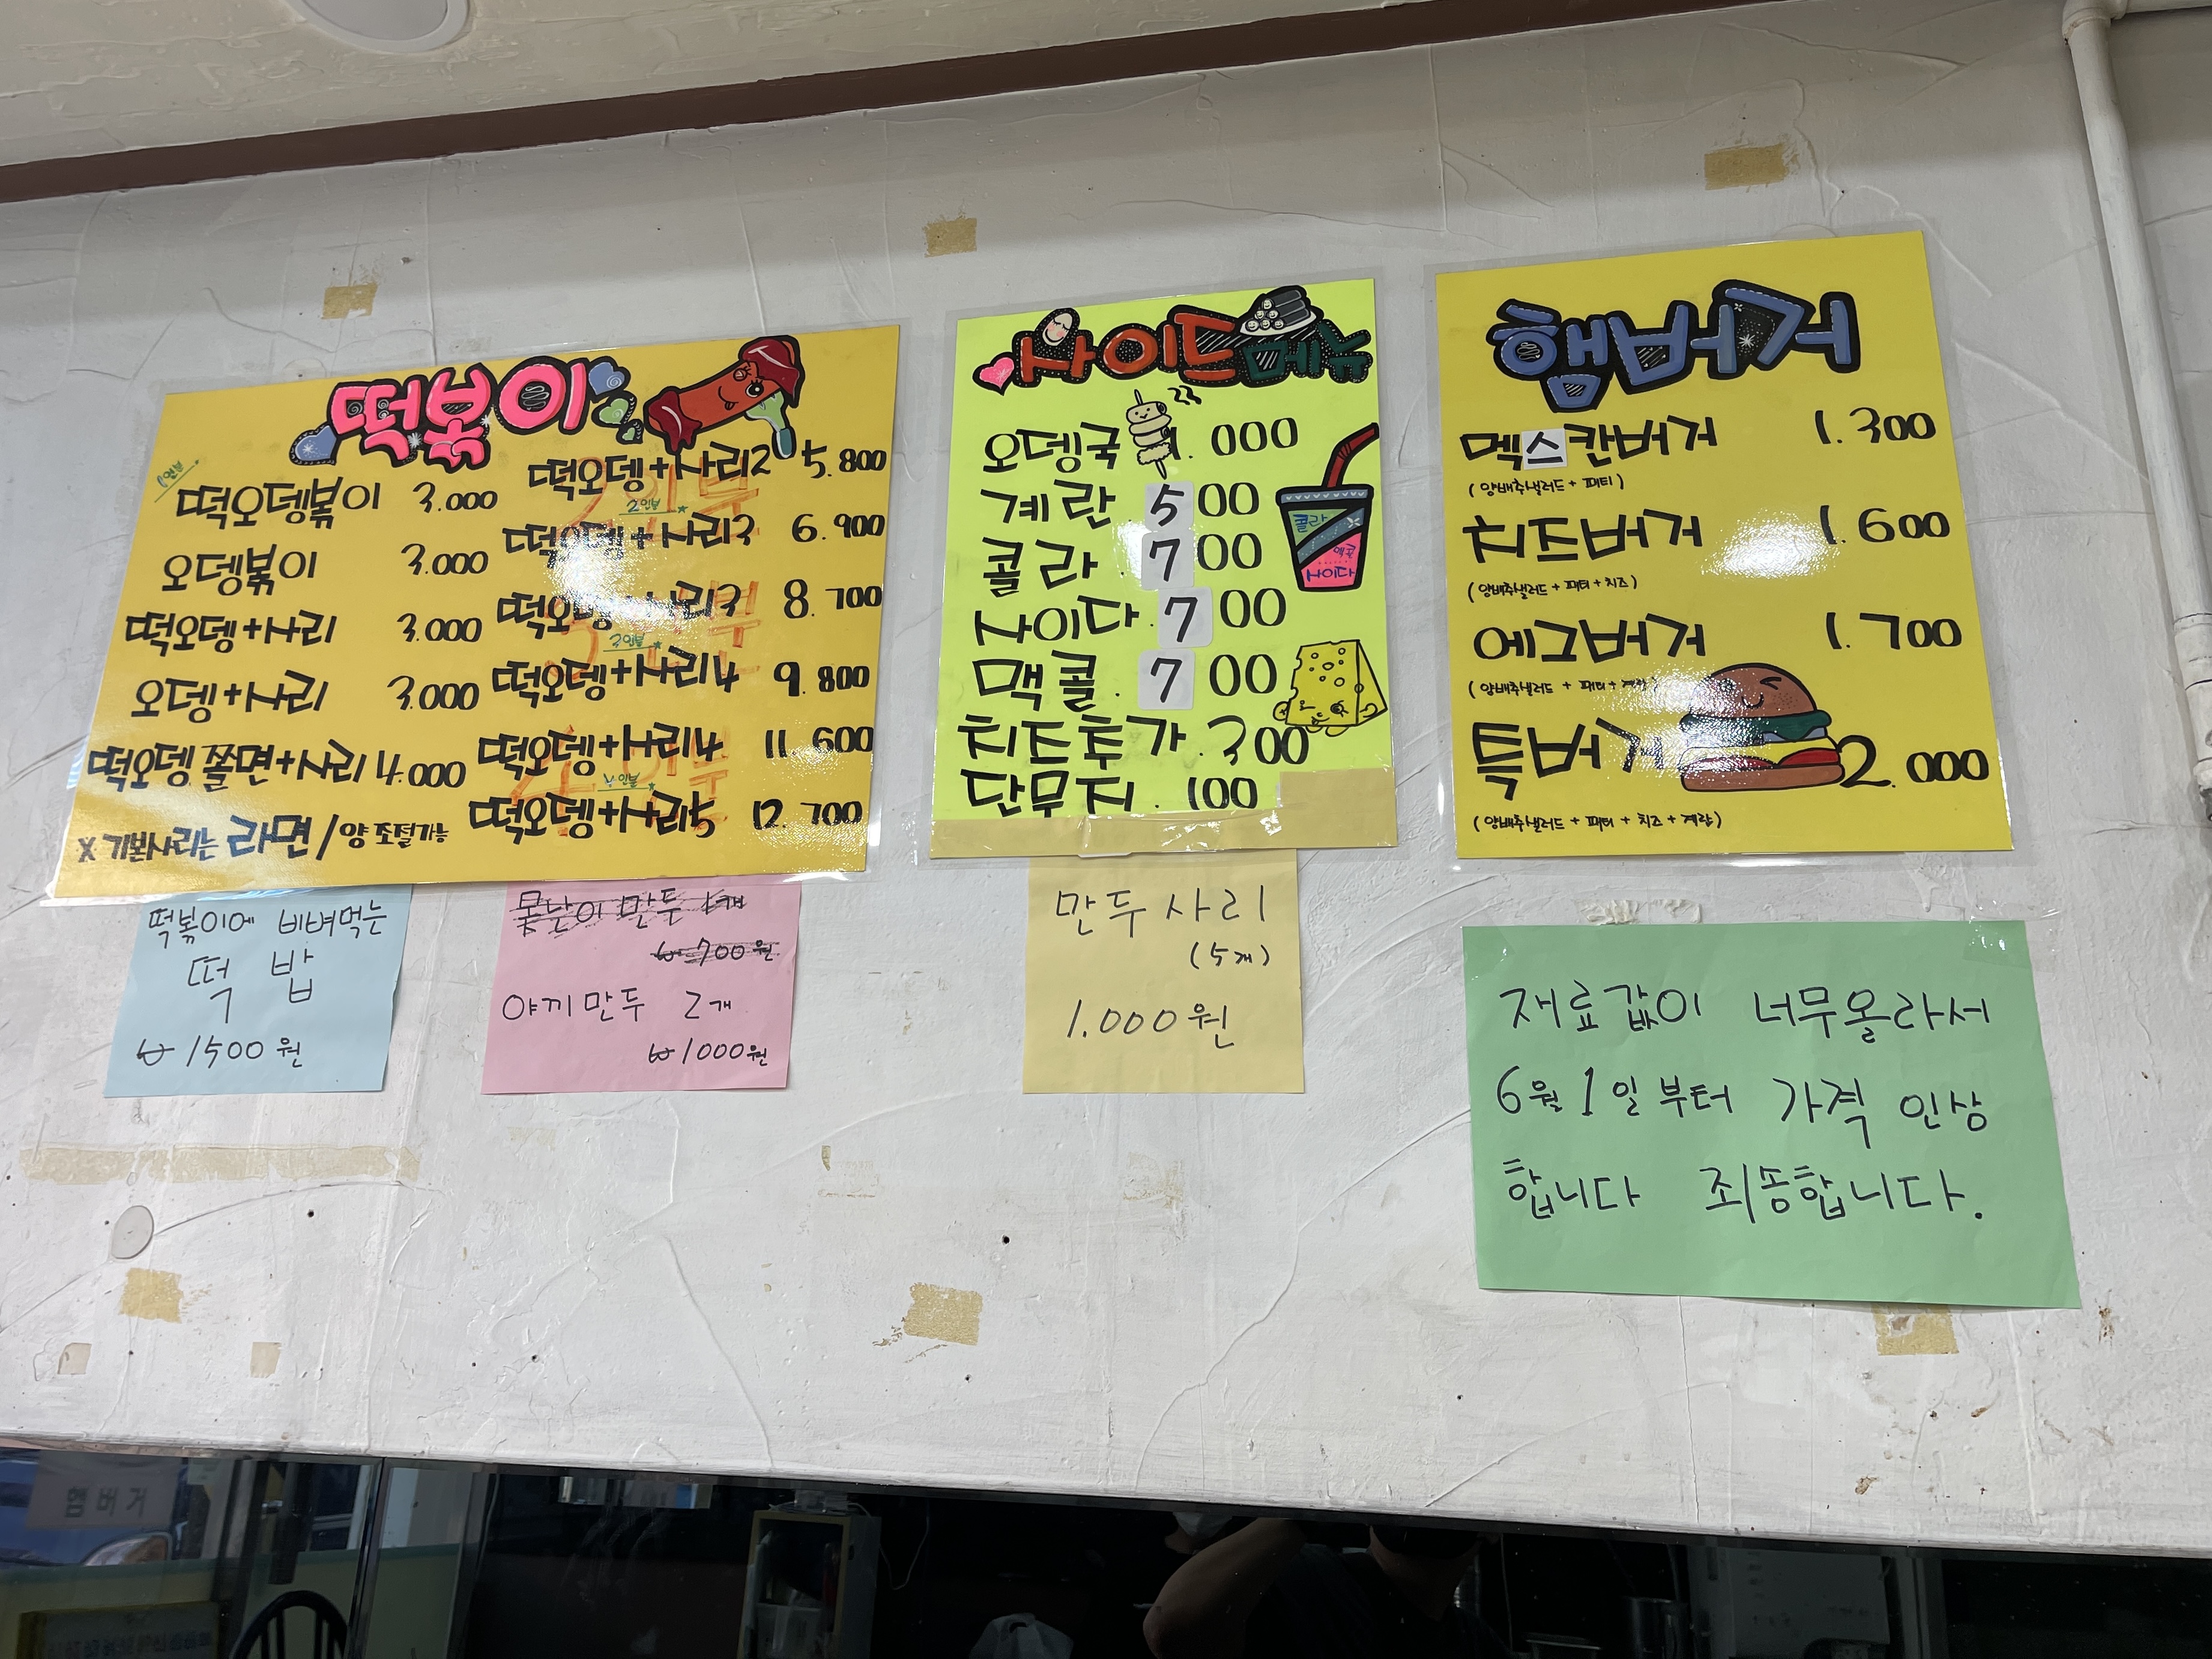 떡볶이
1인분
떡오뎅볶이 3.000
오뎅볶이 3.000
떡오뎅+사리 3.000
오뎅+사리 3.000
떡오뎅쫄면+사리 4.000
X 기본사리는 라면/양조절가능
떡오뎅+사리2 5.800
2인분
떡오뎅+사리3 6.900
떡오뎅+사리3 8.700
3인분
떡오뎅+사리4 9.800
떡오뎅+사리4 11.600
4인분
떡오뎅+사리5 12.700
사이드메뉴
오뎅국 1.000
계란 500
콜라.700
사이다.700
맥콜.700
치즈추가.300
단무지.100
콜라
맥콜
사이다
햄버거
멕스칸버거 1.300
(양배추샐러드+패티)
치즈버거 1.600
(양배추샐러드+패티+치즈)
에그버거 1.700
(양배추샐러드+패티+계란)
특버거 2.000
(양배추샐러드+패티+치즈+계란)
떡볶이에 비벼먹는
떡 밥
₩1500원
못난이만두 1개
₩700원
야끼만두 2개
₩1000원
만두사리
(5개)
1.000원
재료값이 너무올라서
6월1일부터 가격 인상
합니다 죄송합니다.
햄버거